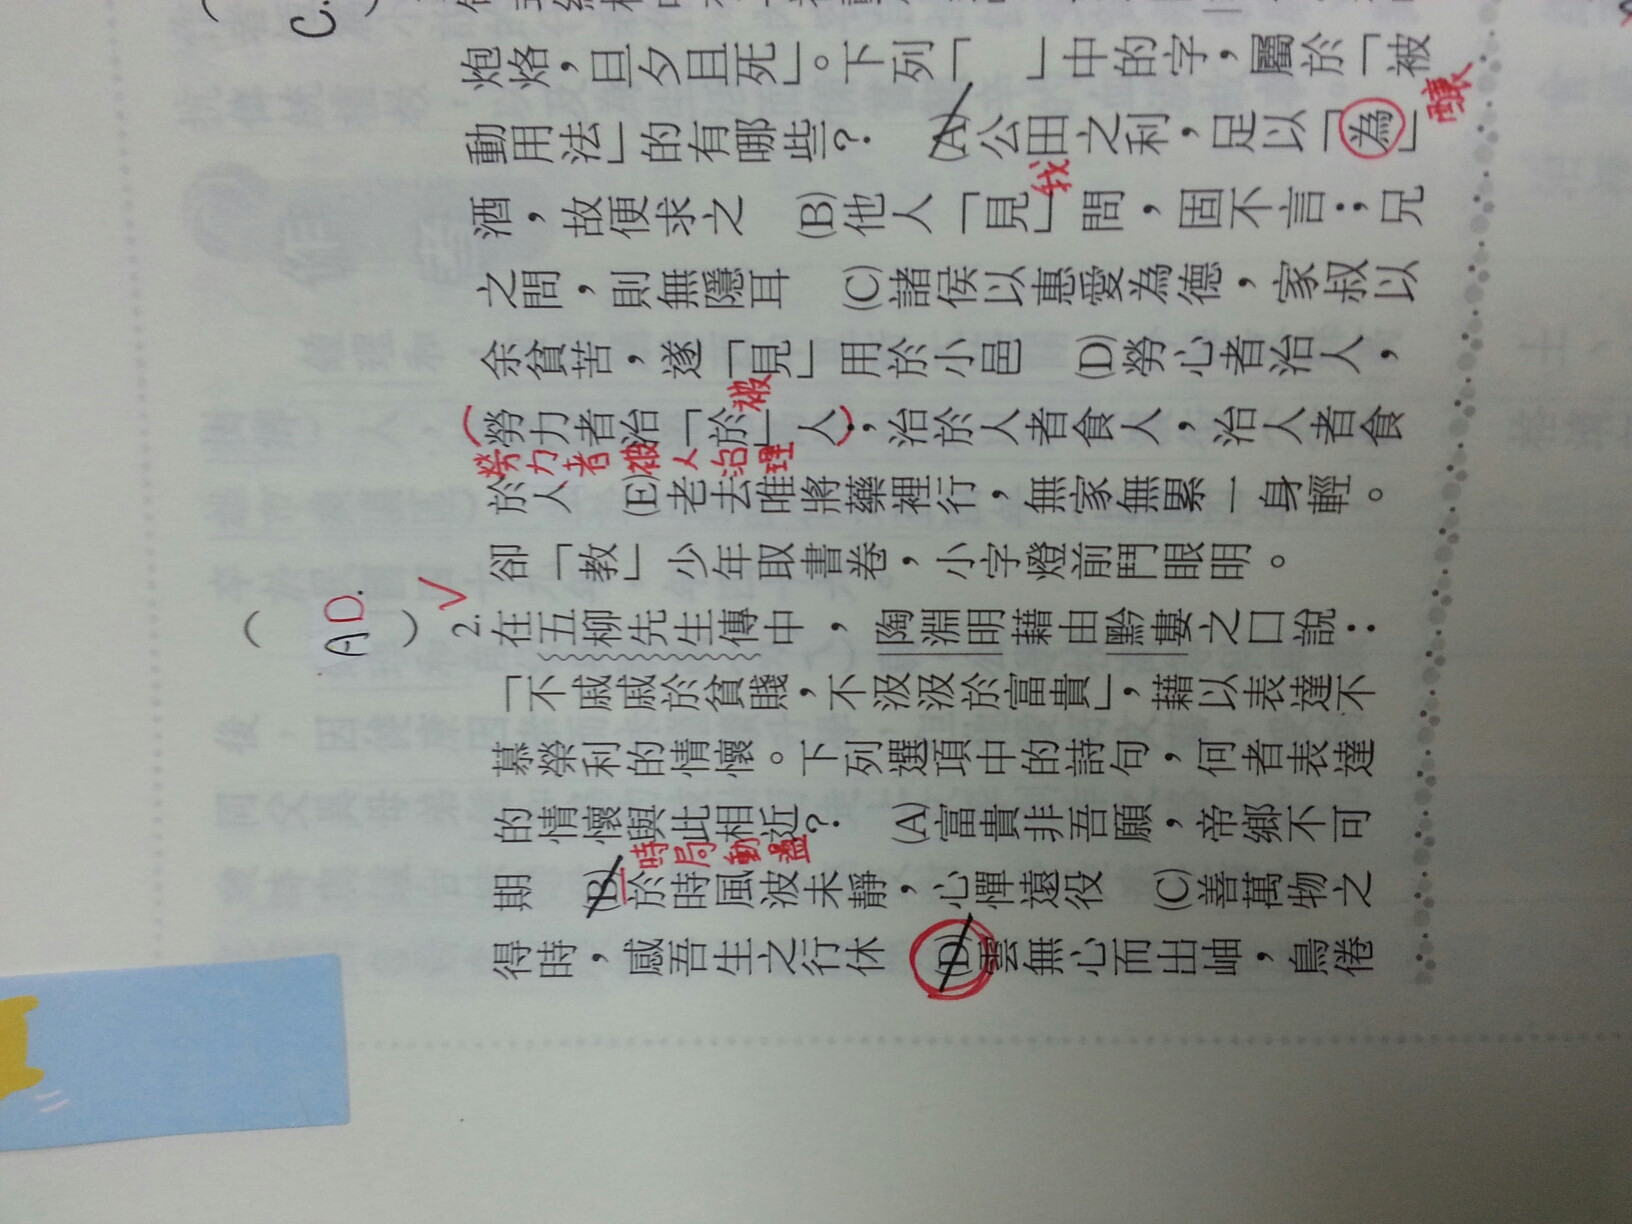 C.
炮烙，旦夕且死」。下列「　」中的字，屬於「被
動用法」的有哪些？　(A)公田之利，足以「為」
釀
酒，故便求之　(B)他人「見」問，固不言；兄
我
之問，則無隱耳　(C)諸侯以惠愛為德，家叔以
余貧苦，遂「見」用於小邑　(D)勞心者治人，
勞力者治「於」人，治於人者食人，治人者食
被
勞力者被人治理
於人　(E)老去唯將藥裡行，無家無累一身輕。
卻「教」少年取書卷，小字燈前鬥眼明。
(AD.)
2.在五柳先生傳中，陶淵明藉由黔婁之口說：
「不戚戚於貧賤，不汲汲於富貴」，藉以表達不
慕榮利的情懷。下列選項中的詩句，何者表達
的情懷與此相近？　(A)富貴非吾願，帝鄉不可
時局動盪
期　(B)於時風波未靜，心憚遠役　(C)善萬物之
得時，感吾生之行休　(D)雲無心而出岫，鳥倦